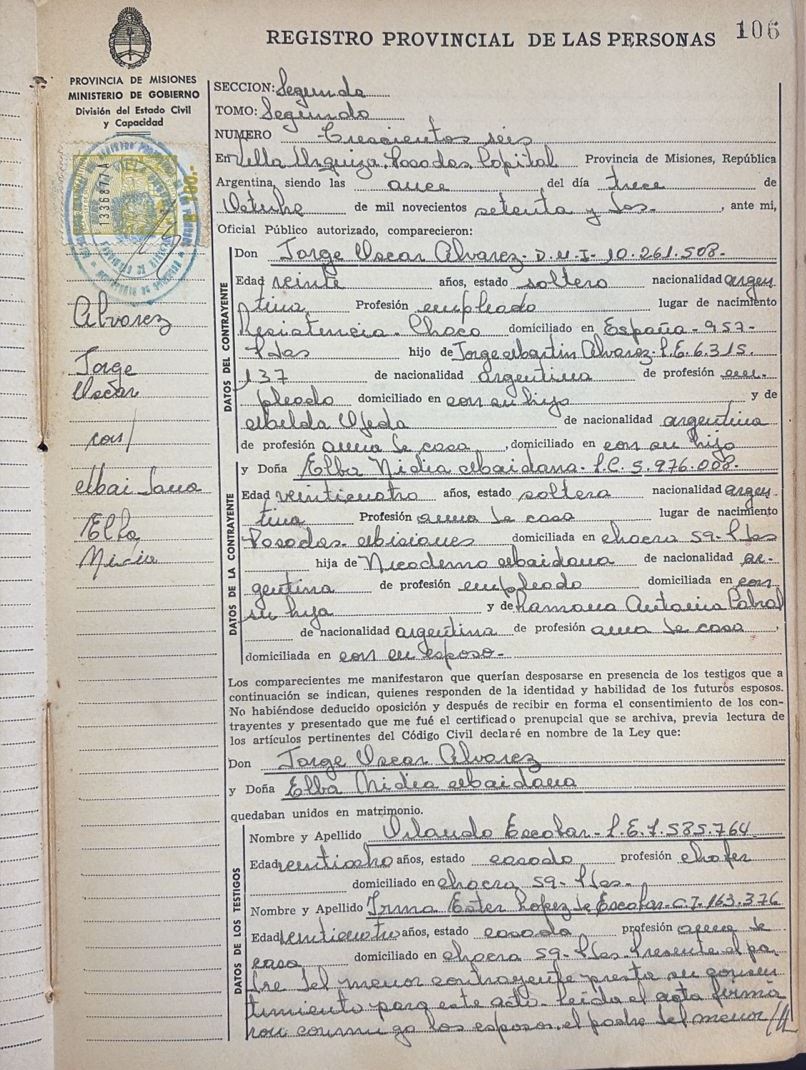 106
REGISTRO PROVINCIAL DE LAS PERSONAS
PROVINCIA DE MISIONES
MINISTERIO DE GOBIERNO
División del Estado Civil
y Capacidad
1336877A
Alvarez
Jorge
Oscar
con/
Maidana
Elba
Nidia
SECCION: Segunda
TOMO: Segundo
NUMERO Trescientos seis
En Villa Urquiza, Posadas Capital Provincia de Misiones, República
Argentina, siendo las once del día trece de
Octubre de mil novecientos setenta y dos. , ante mi,
Oficial Público autorizado, comparecieron:
DATOS DEL CONTRAYENTE
Don Jorge Oscar Alvarez- D.N.I- 10.261.508-
Edad veinte años, estado soltero nacionalidad argen
tina Profesión empleado lugar de nacimiento
Resistencia- Chaco domiciliado en España-957-
Pdas hijo de Jorge Martin Alvarez- L.E.6.315.
137 de nacionalidad argentina de profesión em-
pleado domiciliado en con su hijo y de
Melda Ojeda de nacionalidad argentina
de profesión ama de casa , domiciliado en con su hijo
DATOS DE LA CONTRAYENTE
y Doña Elba Nidia Maidana- L.C. 5.976.008-
Edad veinticuatro años, estado soltera nacionalidad argen
tina Profesión ama de casa lugar de nacimiento
Posadas Misiones domiciliada en chacra 59- Pdas
hija de Nicodemo Maidana de nacionalidad ar-
gentina de profesión empleado domiciliada en con
su hija y de Ramona Antonia Cabral
de nacionalidad argentina de profesión ama de casa ,
domiciliada en con su esposo-
Los comparecientes me manifestaron que querían desposarse en presencia de los testigos que a
continuación se indican, quienes responden de la identidad y habilidad de los futuros esposos.
No habiéndose deducido oposición y después de recibir en forma el consentimiento de los con-
trayentes y presentado que me fué el certificado prenupcial que se archiva, previa lectura de
los artículos pertinentes del Código Civil declaré en nombre de la Ley que:
Don Jorge Oscar Alvarez
y Doña Elba Nidia Maidana
quedaban unidos en matrimonio.
DATOS DE LOS TESTIGOS
Nombre y Apellido Orlando Escobar- L.E.7.585.764
Edad veintiocho años, estado casado profesión chofer
domiciliado en chacra 59- Pdas-
Nombre y Apellido Irma Ester Lopez de Escobar- C.I.163.376
Edad veinticuatro años, estado casada profesión ama de
casa domiciliado en chacra 59- Pdas- Presente el pa
dre del menor contrayente presta su consen
timiento para este acto- Leida el acta firma
ron conmigo los esposos, el padre del menor //